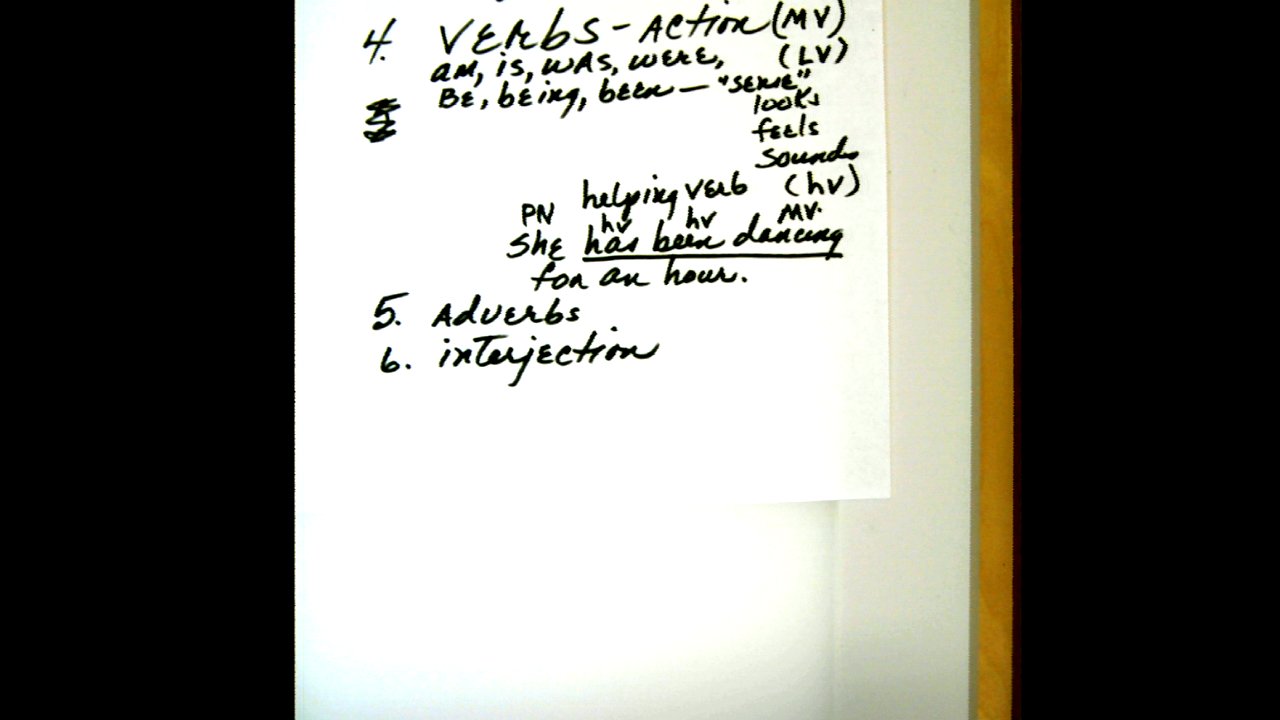 4. VERbS - Action (MV)
Am, is, WAS, WERE, (LV)
BE, bEing, been - "SENSE"
looks
fEEls
sounds
helping VErb (hv)
PN hv hv MV.
ShE has been dancing
for an hour.
5. AdvErbs
6. intErjEction